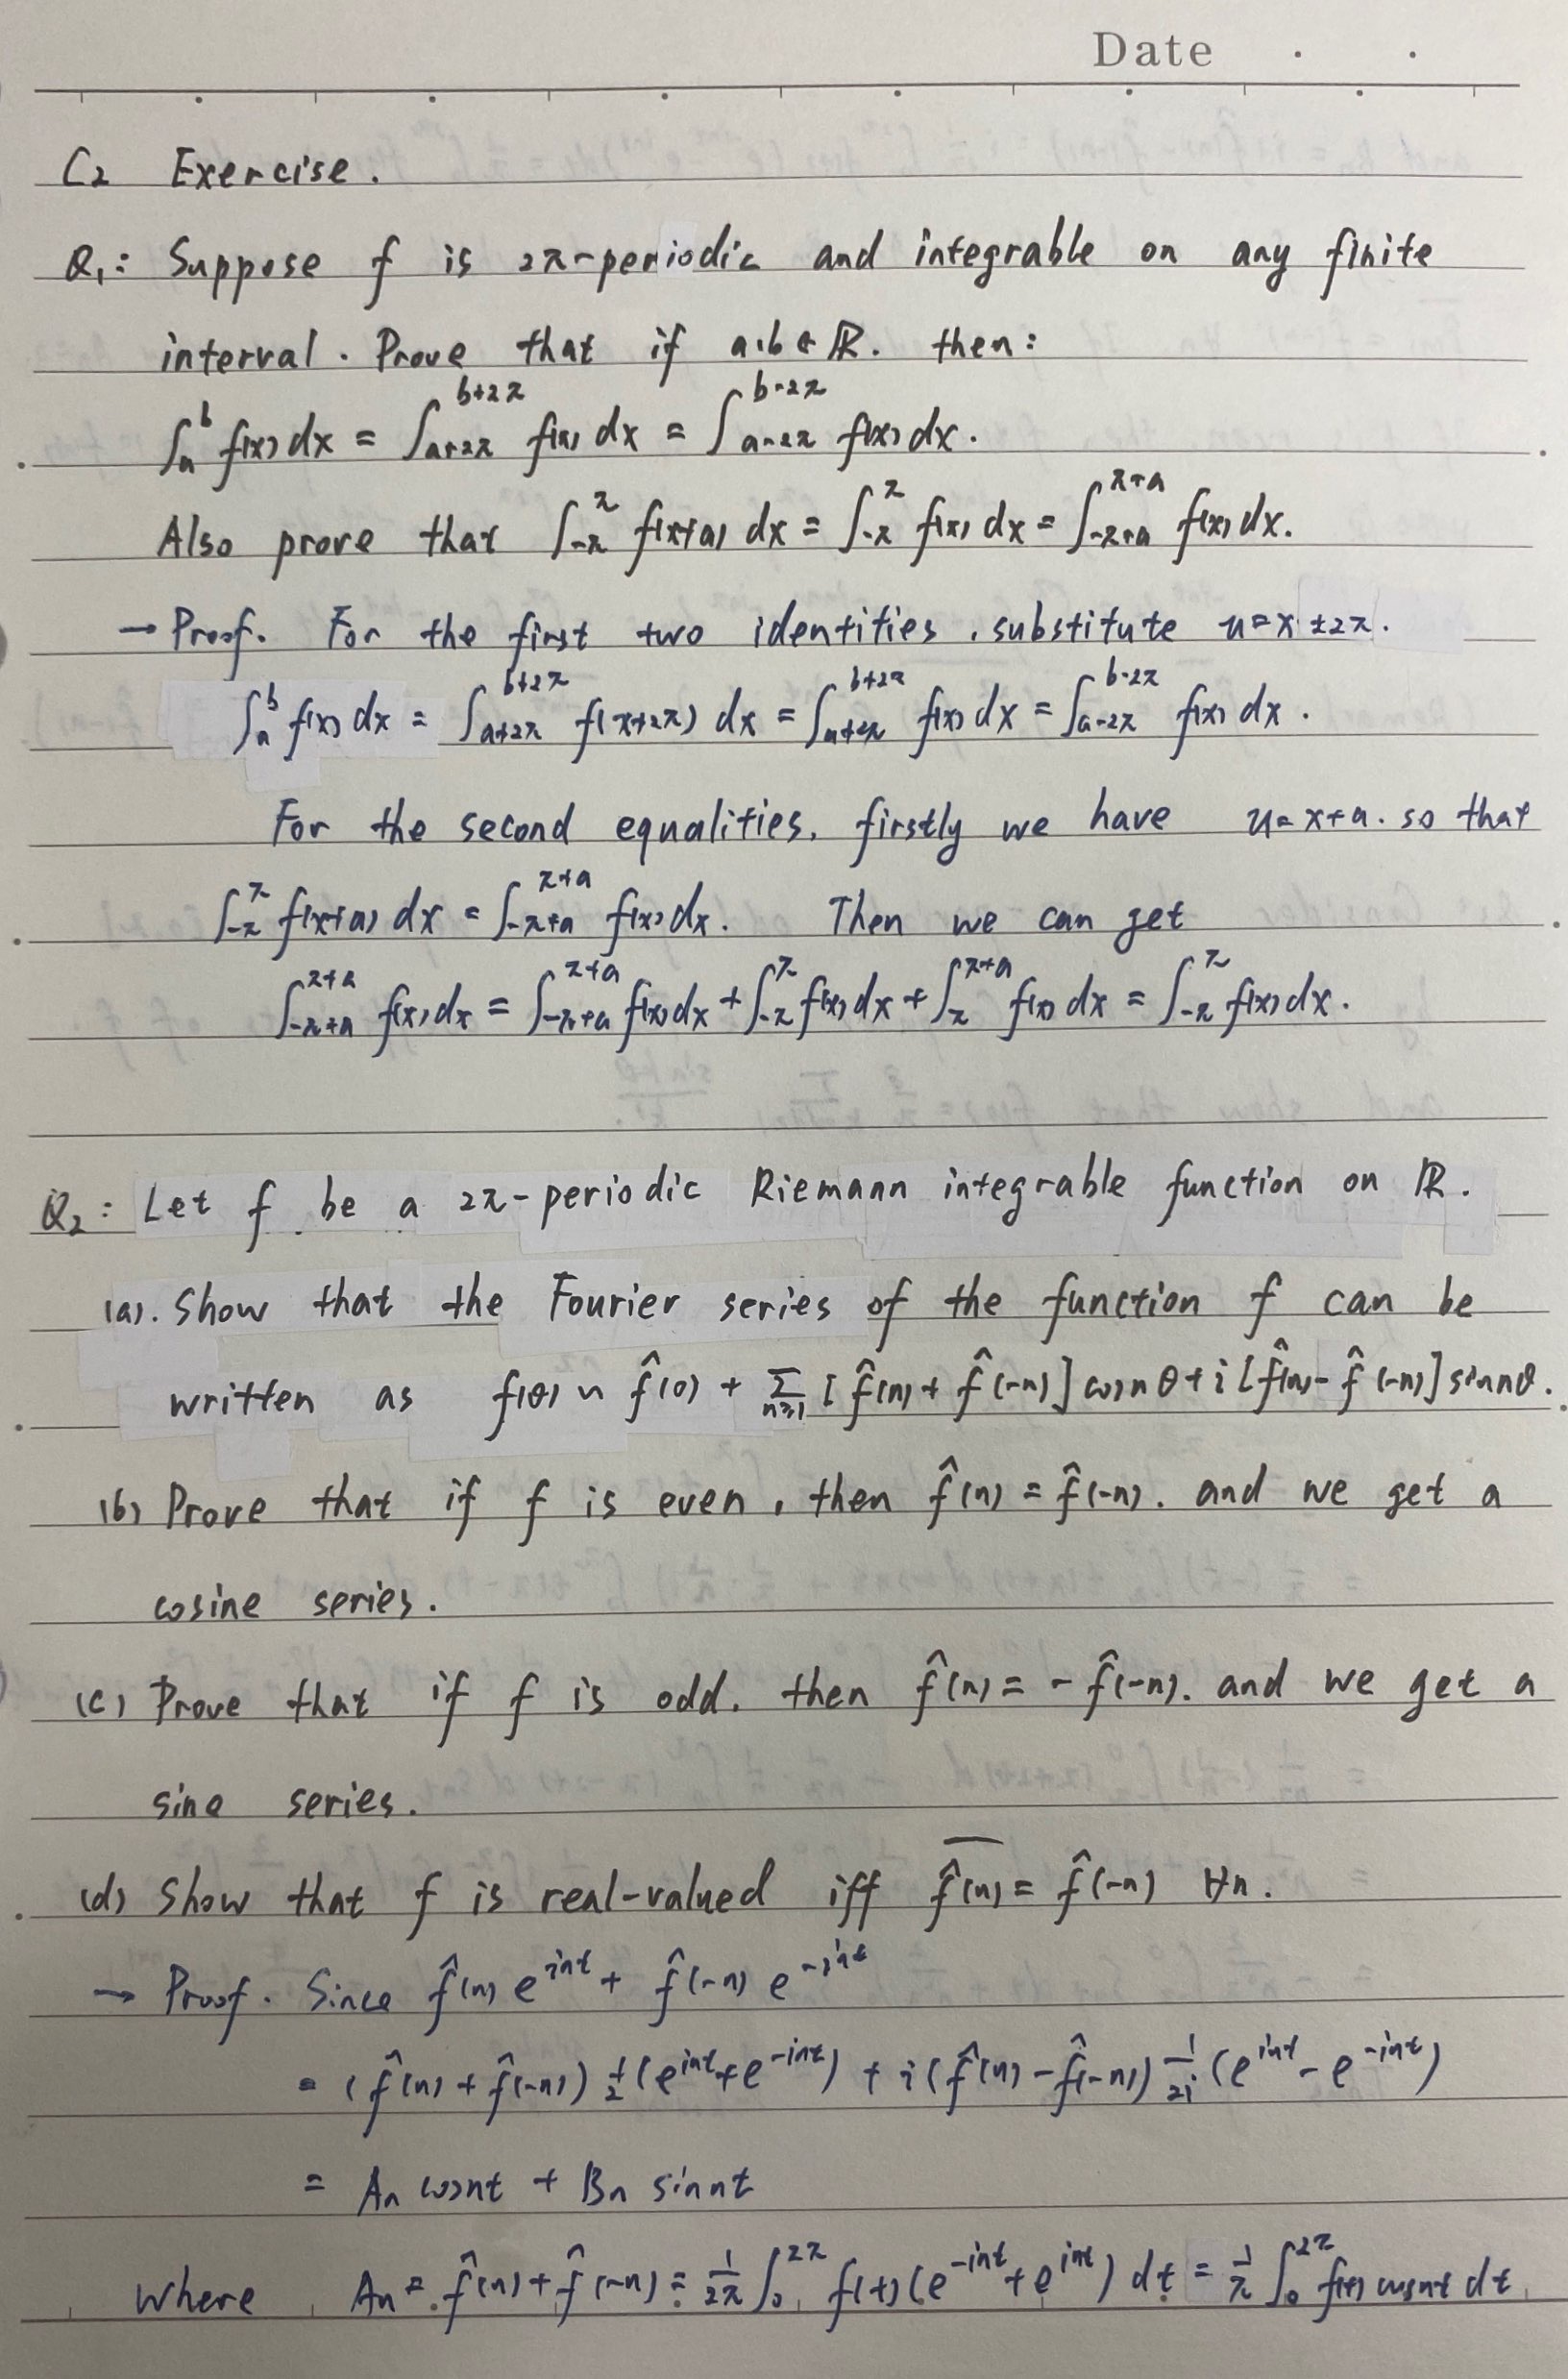 Date
C2 Exercise.
Q1: Suppose f is 2π-periodic and integrable on any finite
interval. Prove that if a,b ∈ ℝ. then:
∫_a^b f(x) dx = ∫_{a+2π}^{b+2π} f(x) dx = ∫_{a-2π}^{b-2π} f(x) dx.
Also prove that ∫_{-π}^{π} f(x+a) dx = ∫_{-π}^{π} f(x) dx = ∫_{-π+a}^{π+a} f(x) dx.
→ Proof. For the first two identities, substitute u=x±2π.
∫_a^b f(x) dx = ∫_{a+2π}^{b+2π} f(x+2π) dx = ∫_{a+2π}^{b+2π} f(x) dx = ∫_{a-2π}^{b-2π} f(x) dx.
For the second equalities. firstly we have u=x+a. so that
∫_{-π}^{π} f(x+a) dx = ∫_{-π+a}^{π+a} f(x) dx. Then we can get
∫_{-π+a}^{π+a} f(x) dx = ∫_{-π+a}^{π+a} f(x) dx + ∫_{-π}^{π} f(x) dx + ∫_{π}^{π+a} f(x) dx = ∫_{-π}^{π} f(x) dx.
Q2: Let f be a 2π-periodic Riemann integrable function on ℝ.
(a). Show that the Fourier series of the function f can be
written as f(θ) ~ f̂(0) + Σ_{n≥1} [f̂(n) + f̂(-n)] cos nθ + i [f̂(n) - f̂(-n)] sin nθ.
(b) Prove that if f is even, then f̂(n) = f̂(-n). and we get a
cosine series.
(c) Prove that if f is odd. then f̂(n) = - f̂(-n). and we get a
sine series.
(d) Show that f is real-valued iff \overline{f̂(n)} = f̂(-n) ∀n.
→ Proof. Since f̂(n) e^{int} + f̂(-n) e^{-int}
= (f̂(n) + f̂(-n)) 1/2 (e^{int} + e^{-int}) + i (f̂(n) - f̂(-n)) 1/2i (e^{int} - e^{-int})
= An cos nt + Bn sin nt
where An = f̂(n) + f̂(-n) = 1/2π ∫_0^{2π} f(t) (e^{-int} + e^{int}) dt = 1/π ∫_0^{2π} f(t) cos nt dt